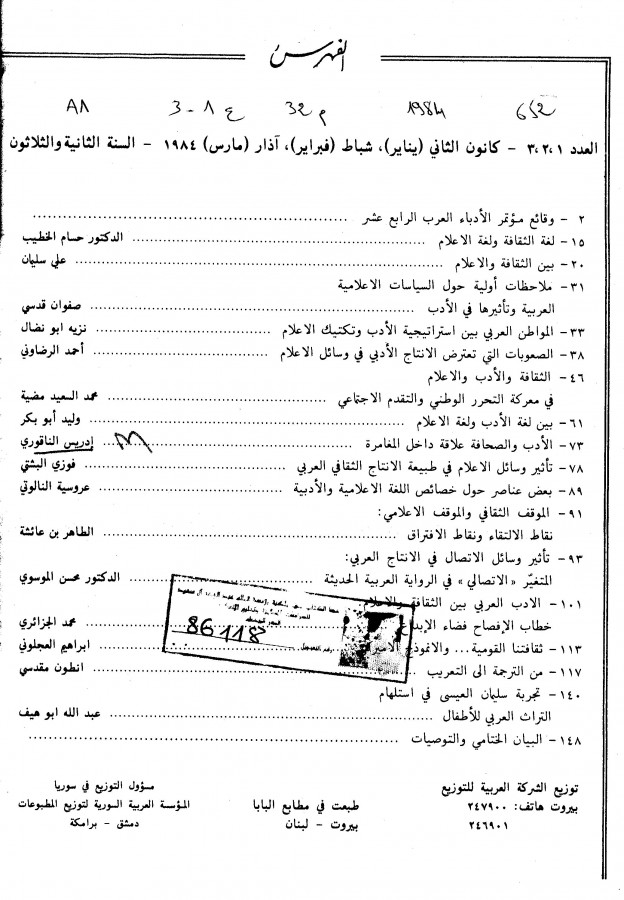 الفهرس
652 1984 م 32 ع 1-3 A1
العدد ١،٢،٣ - كانون الثاني (يناير)، شباط (فبراير)، آذار (مارس) ١٩٨٤ - السنة الثانية والثلاثون
٢ - وقائع مؤتمر الأدباء العرب الرابع عشر
١٥- لغة الثقافة ولغة الاعلام الدكتور حسام الخطيب
٢٠- بين الثقافة والاعلام علي سليمان
٣١- ملاحظات أولية حول السياسات الاعلامية
العربية وتأثيرها في الأدب صفوان قدسي
٣٣- المواطن العربي بين استراتيجية الأدب وتكتيك الاعلام نزيه ابو نضال
٣٨- الصعوبات التي تعترض الانتاج الأدبي في وسائل الاعلام أحمد الرضاوني
٤٦- الثقافة والأدب والاعلام
في معركة التحرر الوطني والتقدم الاجتماعي محمد السعيد مضية
٦١- بين لغة الأدب ولغة الاعلام وليد أبو بكر
٧٣- الأدب والصحافة علاقة داخل المغامرة إدريس الناقوري
٧٨- تأثير وسائل الاعلام في طبيعة الانتاج الثقافي العربي فوزي البشتي
٨٩- بعض عناصر حول خصائص اللغة الاعلامية والأدبية عروسية النالوتي
٩١- الموقف الثقافي والموقف الاعلامي:
نقاط الالتقاء ونقاط الافتراق الطاهر بن عائشة
٩٣- تأثير وسائل الاتصال في الانتاج العربي:
المتغيّر «الاتصالي» في الرواية العربية الحديثة الدكتور محسن الموسوي
١٠١- الادب العربي بين الثقافة والاعلام
خطاب الإفصاح فضاء الإبداع محمد الجزائري
١١٣- ثقافتنا القومية... والانموذج ابراهيم العجلوني
١١٧- من الترجمة الى التعريب انطون مقدسي
١٤٠- تجربة سليمان العيسى في استلهام
التراث العربي للأطفال عبد الله ابو هيف
١٤٨- البيان الختامي والتوصيات
86118
توزيع الشركة العربية للتوزيع
بيروت هاتف: ٢٤٧٩٠٠
٢٤٦٩٠١
طبعت في مطابع البابا
بيروت - لبنان
مسؤول التوزيع في سوريا
المؤسسة العربية السورية لتوزيع المطبوعات
دمشق - برامكة